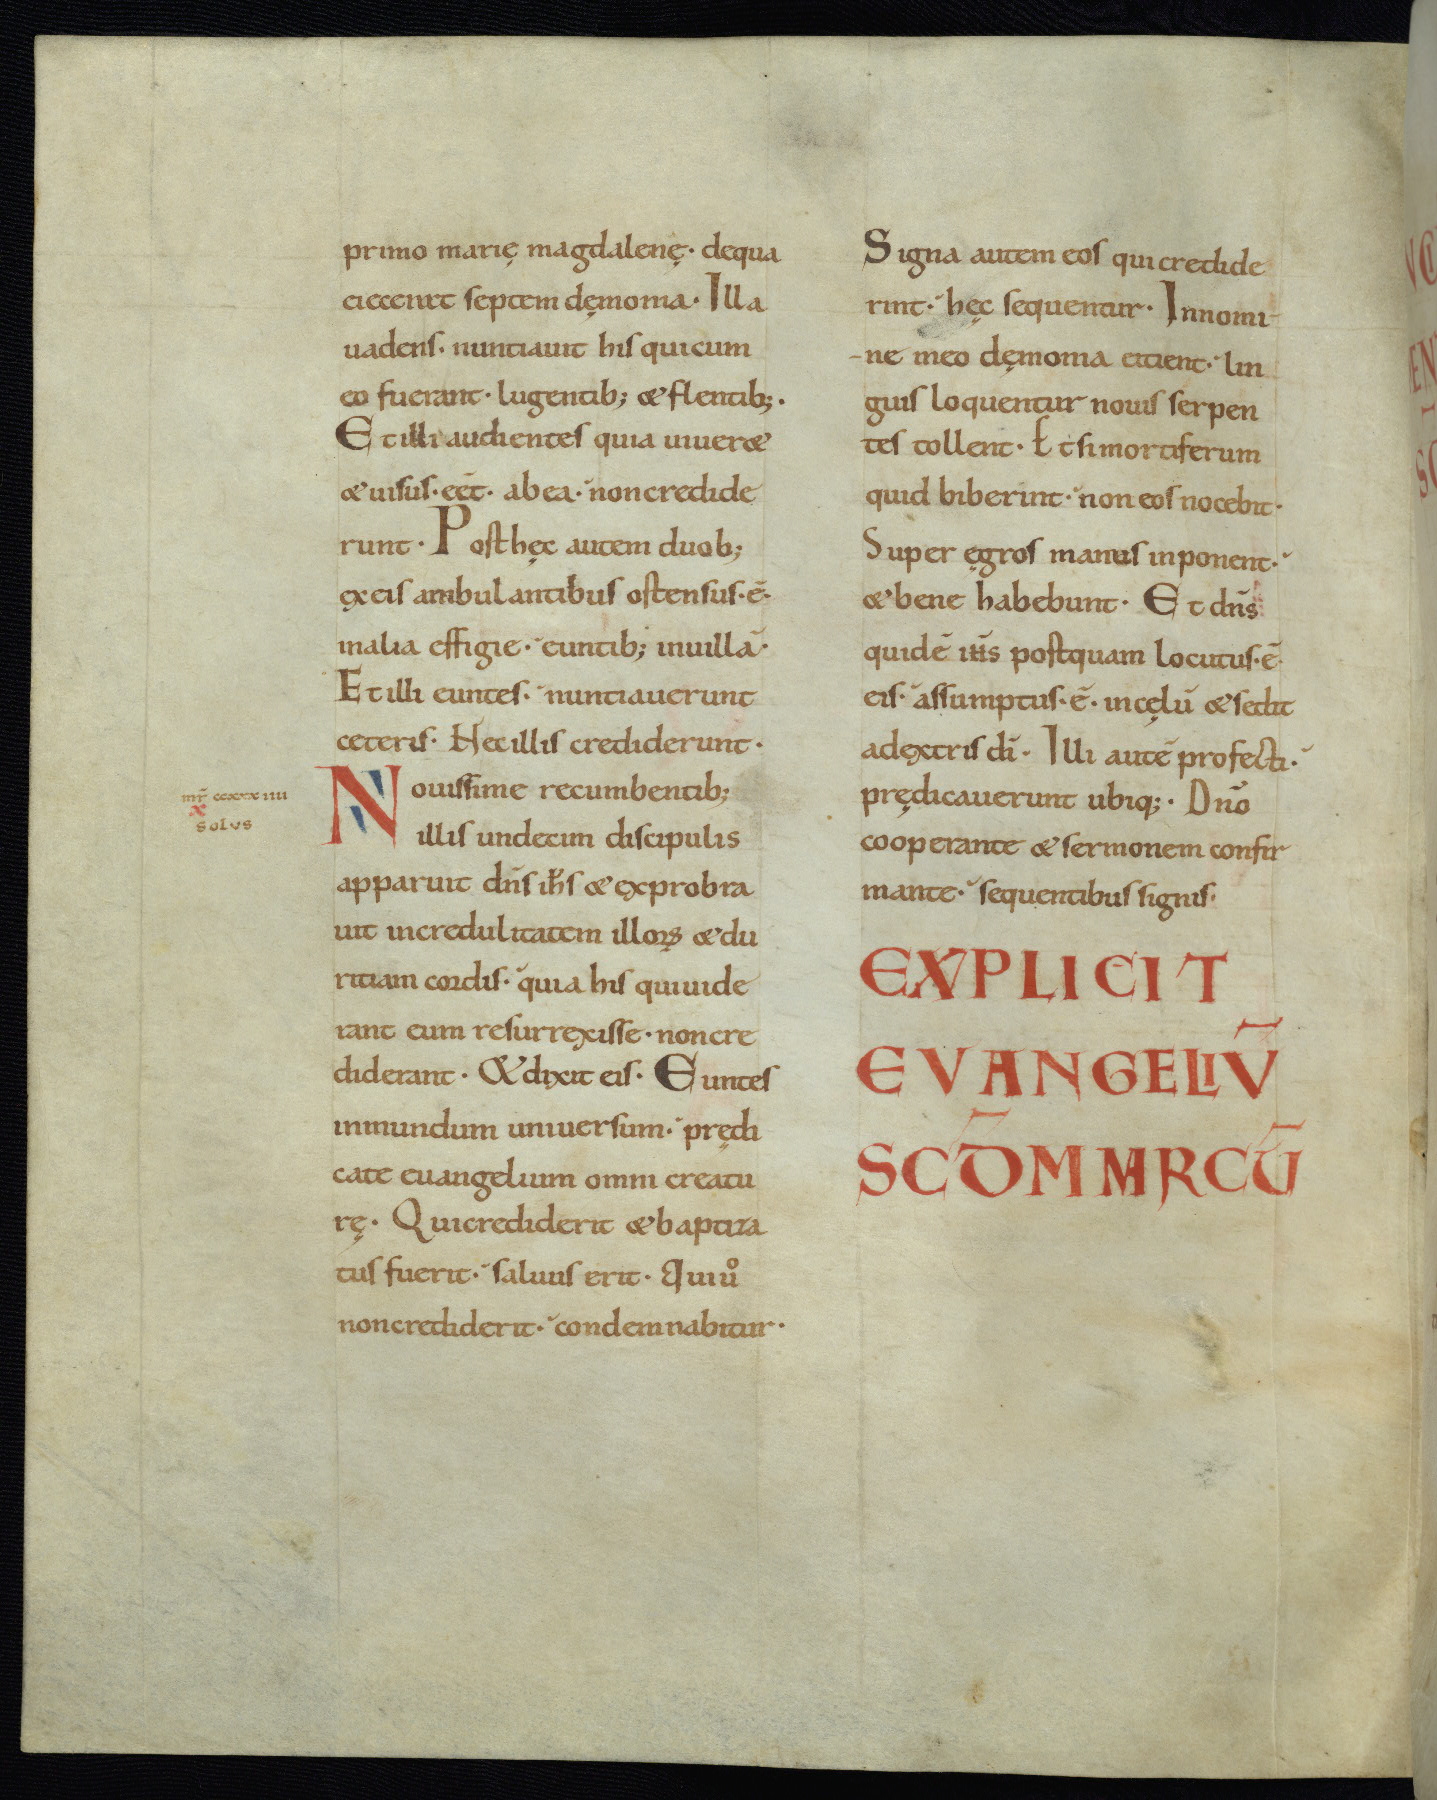 primo marię magdalenę· dequa
eiecerat septem dęmonia· Illa
uadens· nuntiauit his quicum
eo fuerant· lugentib; & flentib;·
Et illi audientes quia uiuer&
& uisus·eēt· abea· noncredide
runt· Posthęc autem duob;
ęxeis ambulantibus ostensus·ē·
inalia effigie· euntib; inuillā·
Et illi euntes· nuntiauerunt
ceteris· Nec illis crediderunt·
mr̄ ccxxxiiii
x
solvs
Nouissime recumbentib;
illis undecim discipulis
apparuit dn̄s ih̄s & ęxprobra
uit incredulitatem illorꝝ & du
ritiam cordis· quia his quiuide
rant eum resurrexisse· noncre
diderant· & dixit eis· Euntes
inmundum uniuersum· prędi
cate euangelium omni creatu
rę· Qui crediderit & baptiza
tus fuerit· saluus erit· Qui uͦ
noncrediderit· condemnabitur·
Signa autem eos qui credide
rint· hęc sequentur· Innomi
ne meo dęmonia eitient· lin
guis loquentur nouis serpen
tes tollent· Et si mortiferum
quid biberint· non eos nocebit·
Super ęgros manus inponent·
& bene habebunt· Et dn̄s
quidē ih̄s postquam locutus·ē·
eis· assumptus·ē· incęlū & sedit
adęxtris dī· Illi autē profecti·
prędicauerunt ubiq;· Dn̄o
cooperante & sermonem confir
mante· sequentibus signis·
EXPLICIT
EVANGELIV̄
SCD̄M MARCŪ